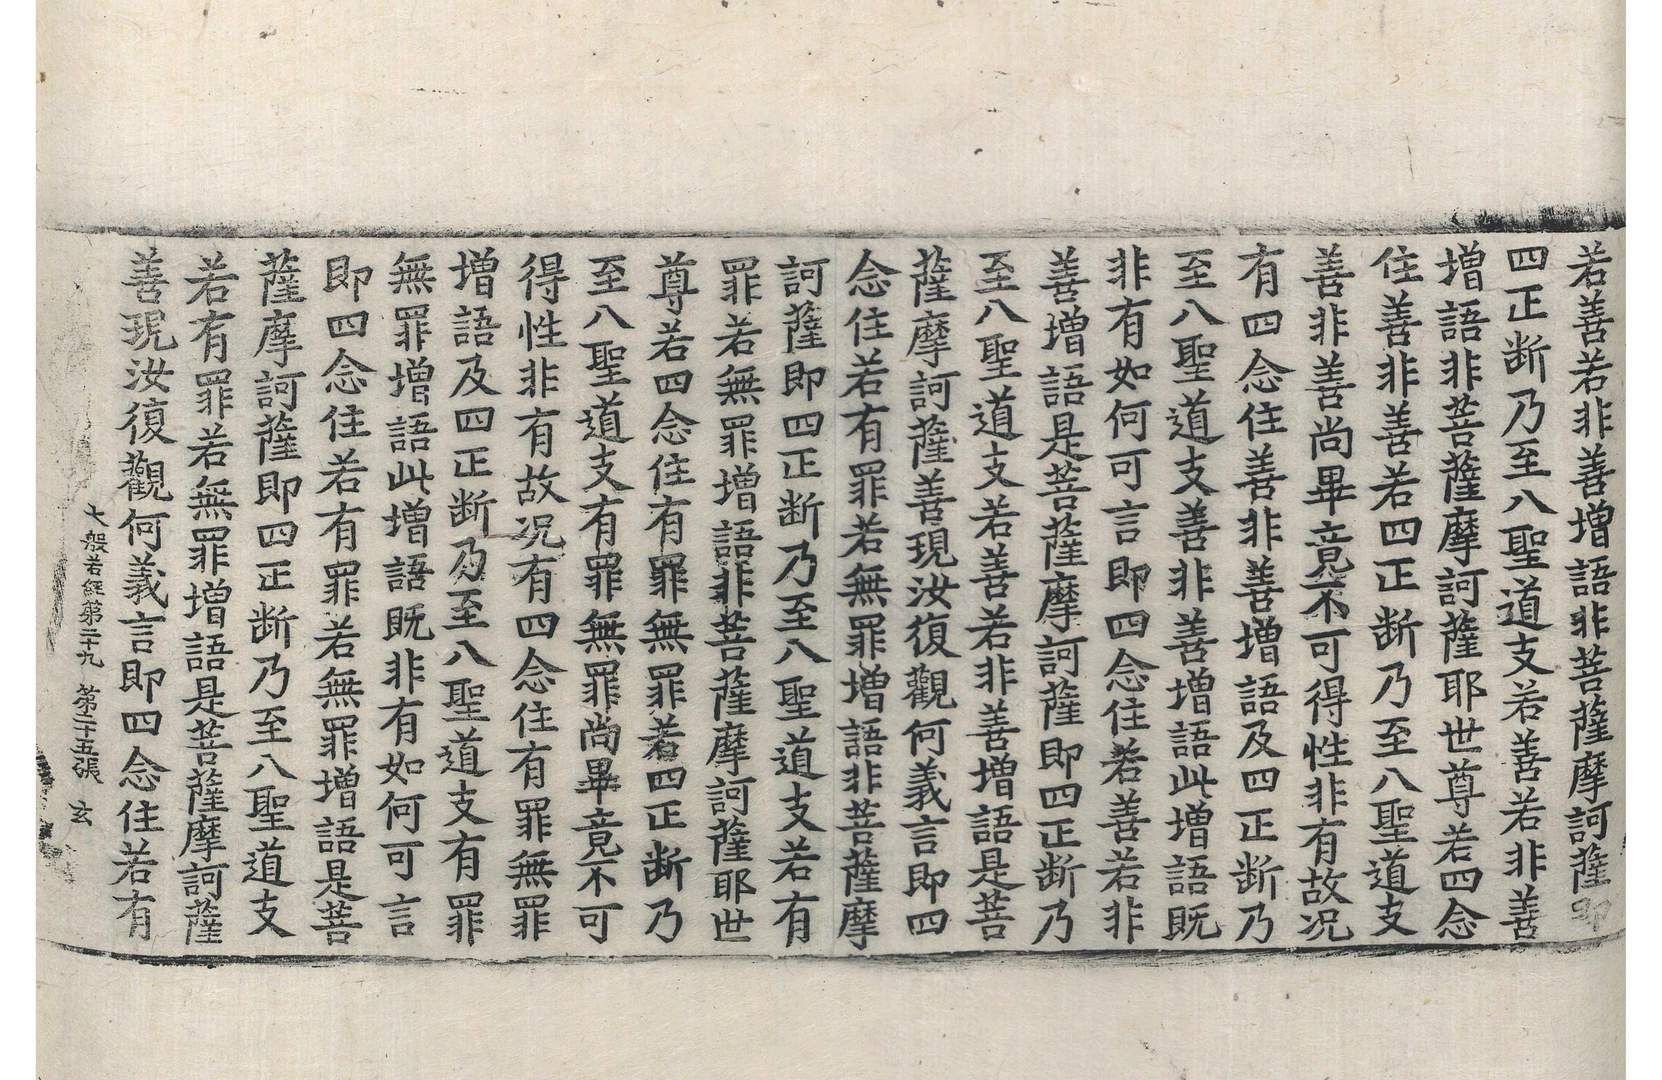 若善若非善增語非菩薩摩訶薩即
四正断乃至八聖道支若善若非善
增語非菩薩摩訶薩耶世尊若四念
住善非善若四正断乃至八聖道支
善非善尚畢竟不可得性非有故况
有四念住善非善增語及四正断乃
至八聖道支善非善增語此增語既
非有如何可言即四念住若善若非
善增語是菩薩摩訶薩即四正断乃
至八聖道支若善若非善增語是菩
薩摩訶薩善現汝復觀何義言即四
念住若有罪若無罪增語非菩薩摩
訶薩即四正断乃至八聖道支若有
罪若無罪增語非菩薩摩訶薩耶世
尊若四念住有罪無罪若四正断乃
至八聖道支有罪無罪尚畢竟不可
得性非有故况有四念住有罪無罪
增語及四正断乃至八聖道支有罪
無罪增語此增語既非有如何可言
即四念住若有罪若無罪增語是菩
薩摩訶薩即四正断乃至八聖道支
若有罪若無罪增語是菩薩摩訶薩
善現汝復觀何義言即四念住若有
大般若経第二十九 第二十五張 玄